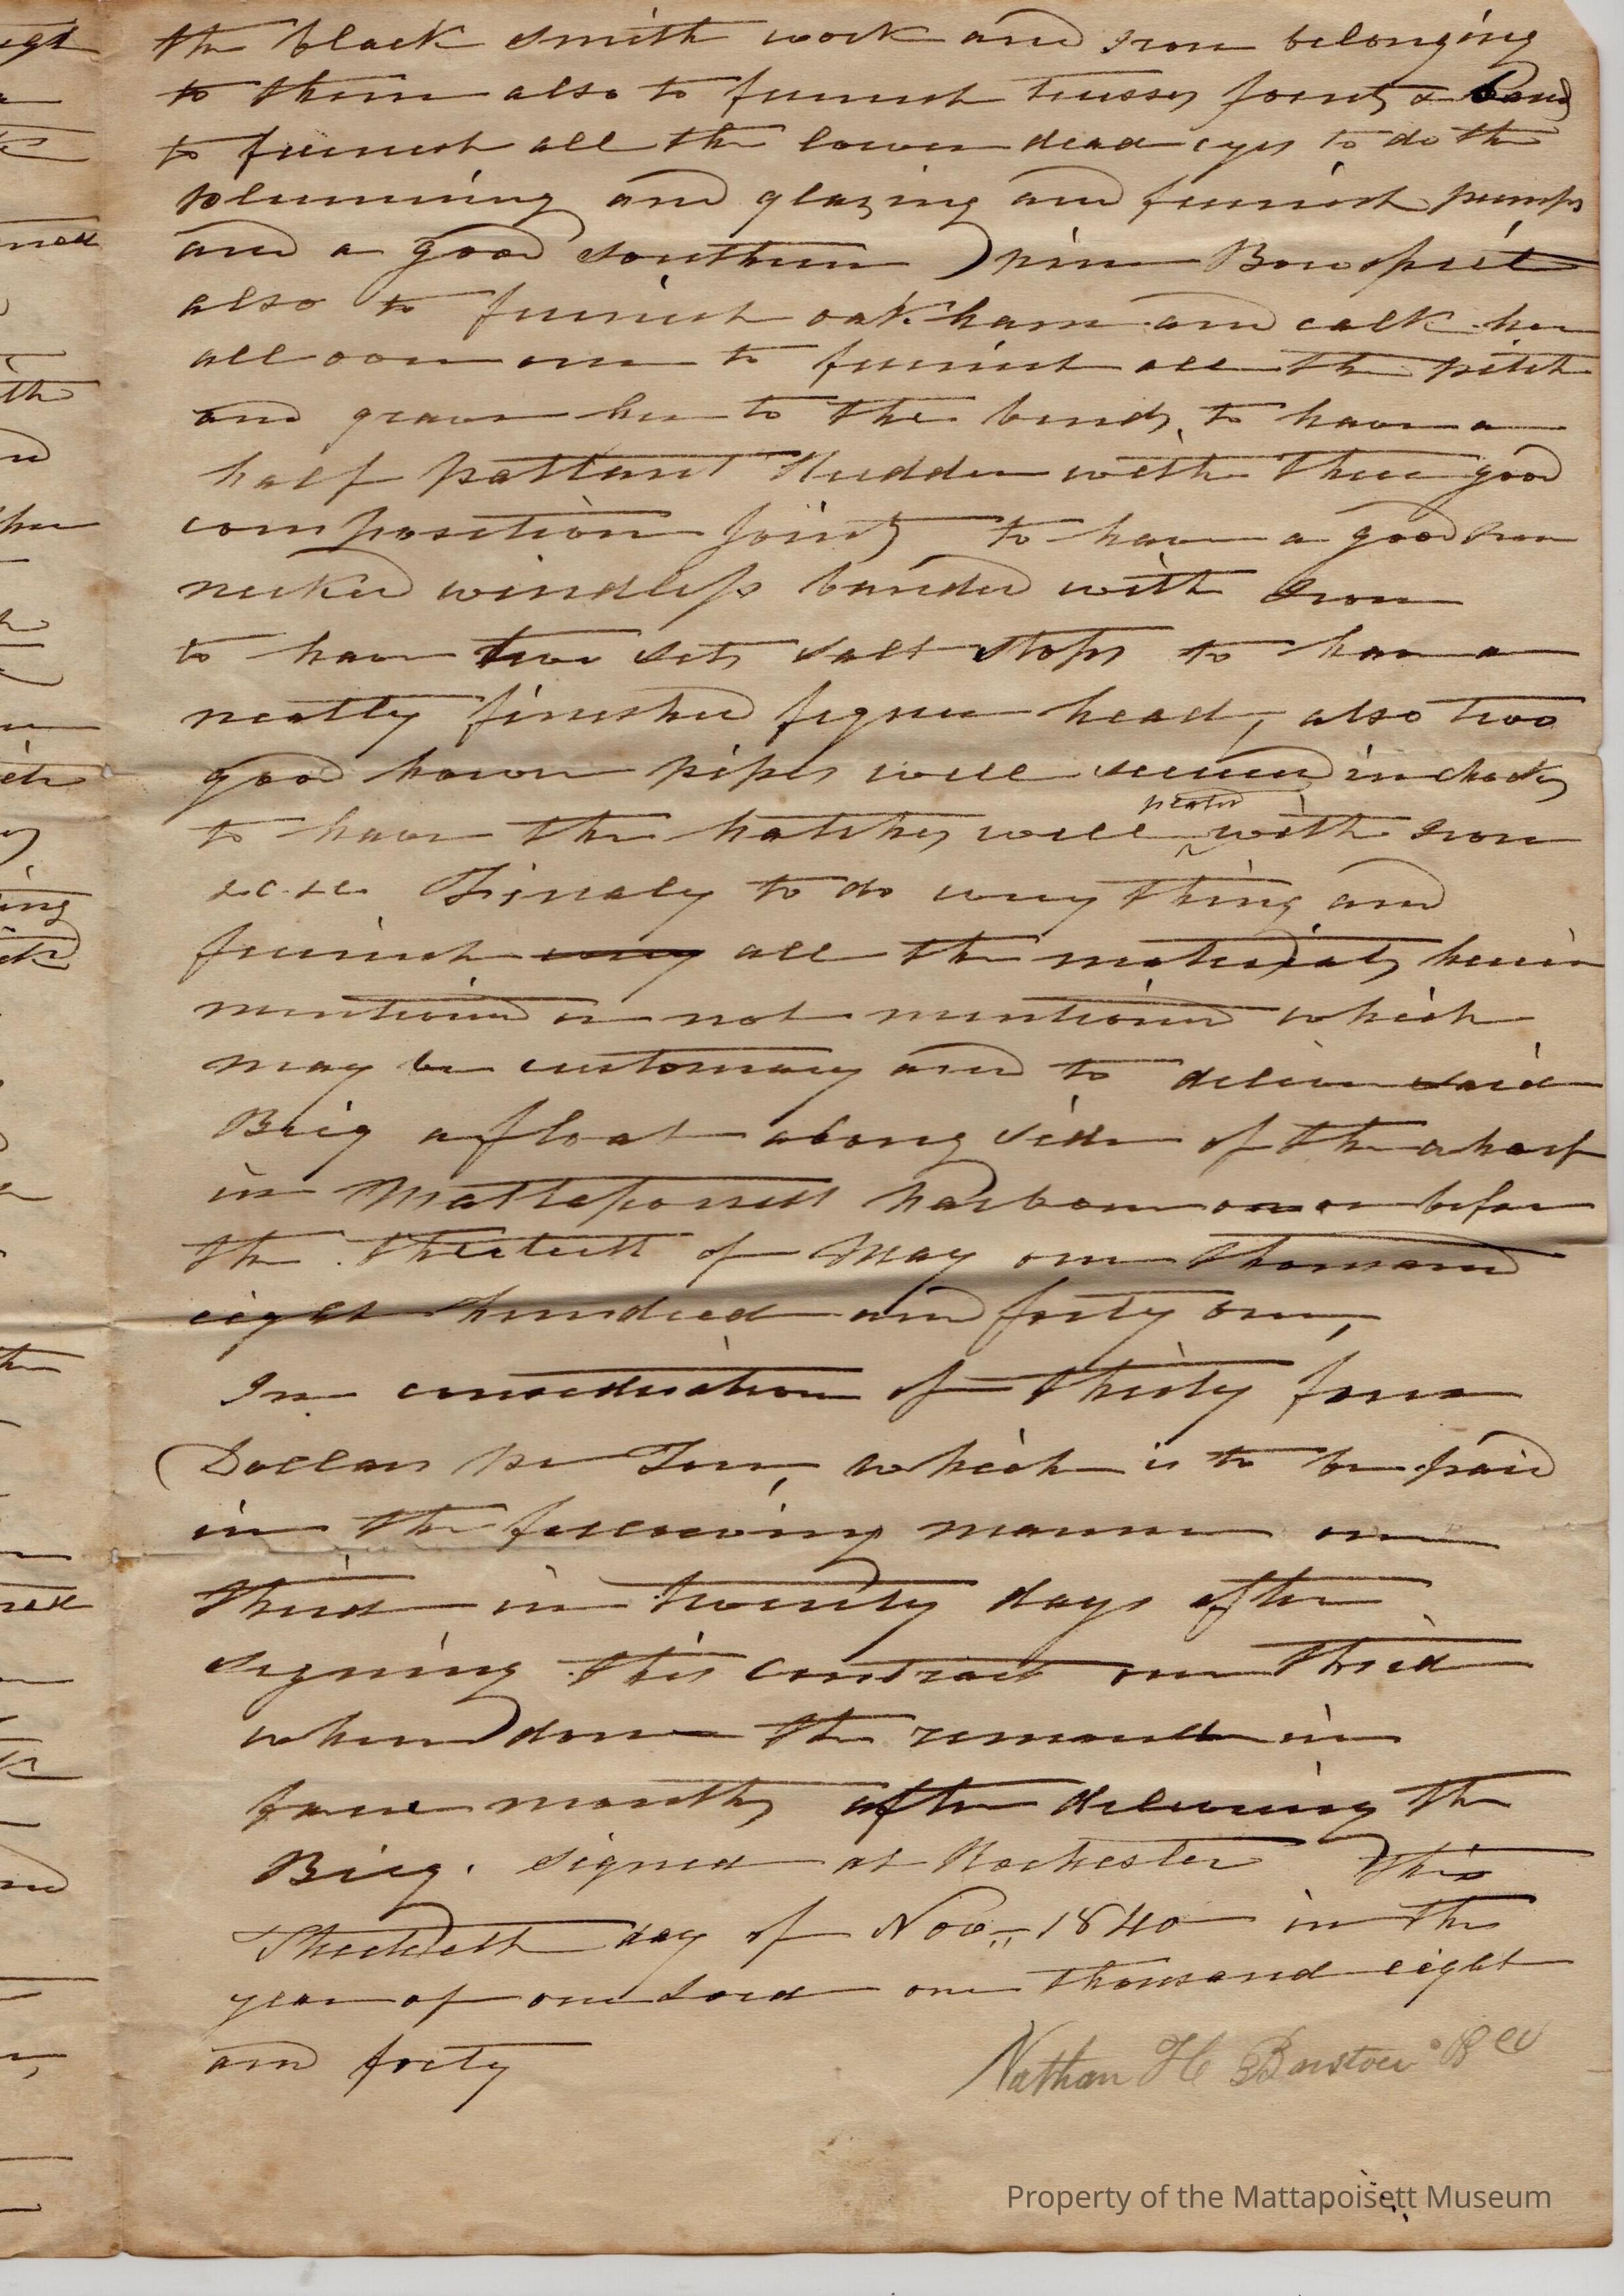 the black smith work and Iron belonging
to them also to furnish trusses joints & Bands
to furnish all the lower dead eyes to do the
plumming and glazing and furnish pumps
and a good southern pine Bowspriet
also to furnish oakham and calk her
all over to furnish all the pitch
and grave her to the bends, to have a
half pattant Rudder with three good
composition joints to have a good Iron
necked windless banded with Iron
to have two sets salt stops to have a
neatly finished figure head, also two
good hawse pipes well secured in chocks
to have the hatches well plated with Iron
&c. &c. Finaly to do every thing and
furnish every all the materials herein
mentioned or not mentioned which
may be customary and to deliver said
Brig afloat along side of the wharf
in Mattapoissett harbour on or before
the of May one thousand
eight hundred and forty one,
In consideration of thirty four
Dollars per Ton, which is to be paid
in the following manner one
third in twenty days after
signing this contract one third
when done the remaind in
four months after delivering the
Brig. Signed at Rochester this
day of Nov. 1840 in the
year of our Lord one thousand eight
and forty
Nathan H Barstow
Property of the Mattapoisett Museum